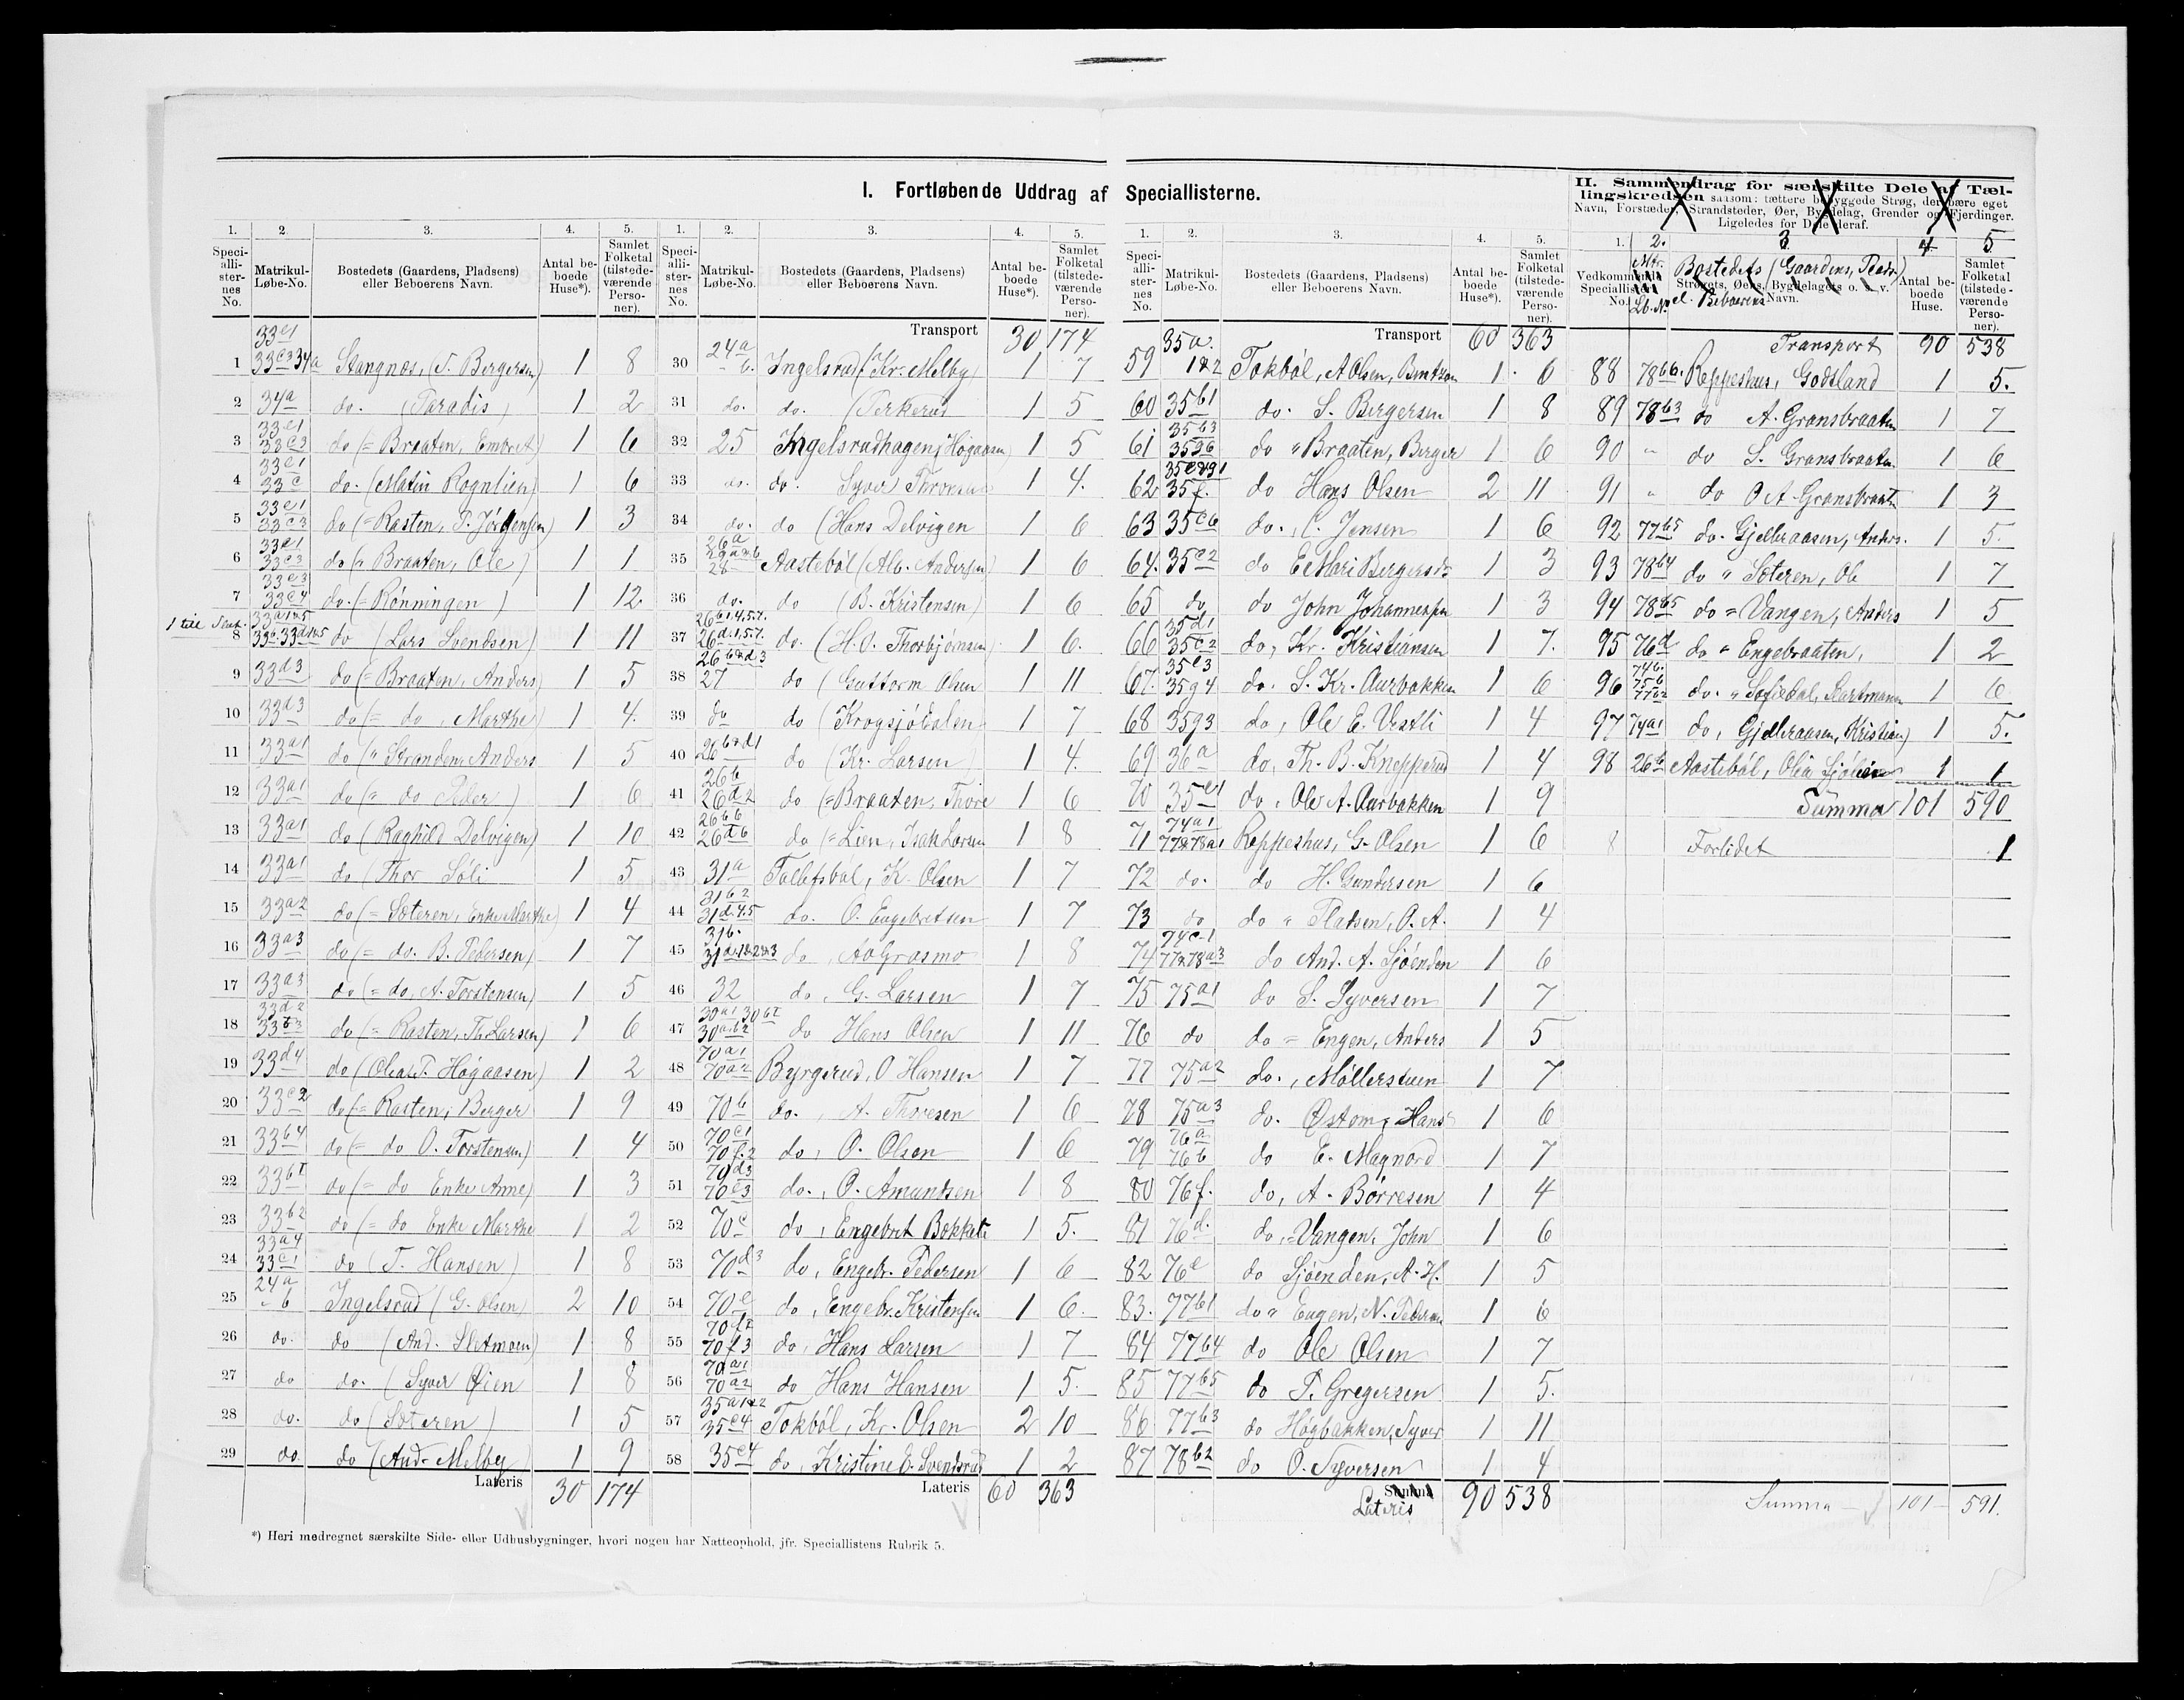 I. Fortløbende Uddrag af Speciallisterne.
1. 2. 3. 4. 5.
Speciallisternes No. Matrikul-Løbe-No. Bostedets (Gaardens, Pladsens) eller Beboerens Navn. Antal beboede Huse*). Samlet Folketal (tilstedeværende Personer).
1 33c1 33c3 34a Stangnæs, (T. Bergersen) 1 8
2 34a do. (Paradis) 1 2
3 33c1 33c3 do (= Braaten, Embret) 1 6
4 33c1 33c do. (Matin Rognlien) 1 6
5 33c1 33c3 do (= Rasten, P. Jörgensen) 1 3
6 33c1 33c3 do (= Braaten, Ole) 1 1
7 33c3 33c4 do. (= Rönningen) 1 12
1 till Sent.
8 do (Lars Svendsen) 1 11
9 33d3 do (= Braaten, Anders) 1 5
10 33d3 do (= do, Marthe) 1 4.
11 33a1 do (" Stranden Anders 1 5
12 33a1 do (" do Peder) 1 6
13 33a1 do (Raghild Delvigen) 1 10
14 33a1 do (Thor Søli 1 5
15 33a2 do (= Sæteren, Enke Marthe) 1 4
16 33a3 do (= do. B. Pedersen) 1 7
17 33a3 do (= do, A. Torstensen) 1 5
18 33d2 33b3 do (= Rasten, Th. Larsen) 1 6
19 33d4 do (Olea T. Högaasen) 1 2
20 33c2 do (= Rasten, Berger 1 9
21 33b4 do (= do O. Torstensen) 1 4
22 33b1 do (= do Enke Anne) 1 3
23 33b2 do (= do Enke Marthe 1 2
24 33a4 33c1 do (T. Hansen) 1 8
25 24a " b Ingelsrud (G. Olsen) 2 10
26 do. do (And. Sletmoen) 1 8
27 do do. (Syver Øien 1 8
28 do. do (Sæteren) 1 5
29 do. do (And. Melby 1 9
Lateris 30 174
*) Heri medregnet særskilte Side- eller Udhusbygninger, hvori nogen har Natteophold, jfr. Speciallistens Rubrik 5.
1. 2. 3. 4. 5.
Speciallisternes No. Matrikul-Løbe-No. Bostedets (Gaardens, Pladsens) eller Beboerens Navn. Antal beboede Huse*). Samlet Folketal (tilstedeværende Personer).
Transport 30 174
30 24a " b. Ingelsrud (Kr. Melby) 1 7
31 do. do. (Perkerud 1 5
32 25 Ingelsrudhagen, Högaasen) 1 5
33 do. do. Syver 1 4.
34 do. do (Hans Delvigen 1 6
35 26a 28 Aastebøl (Alb. Andersen) 1 6
36 do. do (B. Kristensen) 1 6
37 26b1.4.5.7. 26d.1.5.7. do. (H. O. Thorbjørnsen) 1 6.
38 27 do (Guttorm Olsen 1 11
39 do do (Krogsjödalen 1 7
40 26b&d1 do (Kr. Larsen) 1 4.
41 26b 26d2 do (= Braaten, Thore 1 6
42 26b6 26d6 do (= Lien, Isak Larsen 1 8
43 31a Tollefsbøl, K. Olsen 1 7
44 31b2 31d.4.5 do. O. Engebretsen 1 7
45 31b. do, Aa Græsmo 1 8
46 32 do, G. Larsen 1 7
47 do Hans Olsen 1 11
48 70a1 70a2 Byrgerud, O Hansen 1 7
49 70b do., A. Thoresen 1 6
50 70c1 70f.2 do, O. Olsen 1 6
51 70d3 70c3 do., O. Amundsen 1 8
52 70c do, Engebret Bekkelt 1 5.
53 70d3 do, Engebr. Pedersen 1 6
54 70e do, Engebr. Kristensen 1 6.
55 70f3 do, Hans Larsen 1 7
56 70a1 70a2 do Hans Hansen 1 5.
57 35a1&2 35c4 Tokbøl, Kr. Olsen 2 10
58 35c4 do, Kristine E. Svendsrud 1 2
Lateris 60 363
1. 2. 3. 4. 5.
Speciallisternes No. Matrikul-Løbe-No. Bostedets (Gaardens, Pladsens) eller Beboerens Navn. Antal beboede Huse*). Samlet Folketal (tilstedeværende Personer).
Transport 60 363
59 35a. 1&2 Tokbøl, A Olsen, 1 6
60 35b1 do. S. Bergersen 1 8
61 35b3 do " Braaten, Berger 1 6
62 35f. do Hans Olsen 2 11
63 35c6 do., C. Jensen 1 6
64. 35c2 do E. Mari Bergersd. 1 3
65 do do John Johannessen 1 3
66 35d1 35c2 do, Kr. Kristiansen 1 7.
67. 35c3 35g4 do. S. Kr. Aurbakken 1 6
68 35g3 do, Ole E. Vestli 1 4
69 36a do, Th. B. Knepperud 1 4
70 35e1 do, Ole A. Aurbakken 1 9
71 74a1 77&78a1 Reppeshus, G. Olsen 1 6
72 do. do H. Gundersen 1 6
73 do do " Pladsen, O. A. 1 4
74 74c1 77&78a3 do And. A. Sjöenden 1 6
75 75a1 do S. Syversen 1 7
76 do do = Engen, Anders 1 5
77 75a2 do., Möllerstuen 1 7
78 75a3 do. Østom, Hans 1 6
79 76a 76b do E. Magnord 1 7
80 76f. do, A. Börresen 1 4
81 76d. do, = Vangen, John 1 6
82 76e do Sjöenden, A. H. 1 5
83. 77b1 do " Engen, N. Pedersen 1 6
84 77b4 do Ole Olsen 1 7
85 77b5 do T. Gregersen 1 5.
86 77b3 do Høgbakken, Syver 1 11
87 78b2 do O. Syversen 1 4
Summa Lateris 90 538
II. Sammendrag for særskilte Dele af Tællingskredsen saasom: tættere bebyggede Strøg, der bære eget Navn, Forstæder, Strandsteder, Øer, Bygdelag, Grender og Fjerdinger. Ligeledes for Dele deraf.
1. 2. 3 4 5
Vedkommende Speciallisters No. Mtr. Lb. N. Bostedets (Gaardens, Pladsn) Strøgets, Øens, Bygdelagets o. s. v. el. Beboerens Navn. Antal beboede Huse. Samlet Folketal (tilstedeværende Personer).
Transport 90 538
88 78b6. Reppeshus, Godsland 1 5.
89 78b3 do A. Gransbraaten 1 7
90 " do S. Gransbraaten. 1 6
91 " do O A. Gransbraaten 1 3
92 77b5 do. Gjelleraasen, Anders. 1 5.
93 78b4 do " Sæteren, Ole 1 7
94 78b5 do = Vangen, Anders 1 5
95 76d do " Engebraaten, 1 2
96 74b. 75b 77b2 do. " Sofiedal, 1 6
97 74a1 do, Gjelleraasen, Kristian) 1 5.
98 26b Aastebøl, Olia 1 1
Summa 101 590
8 Forlidet 1
Summa 101 591.